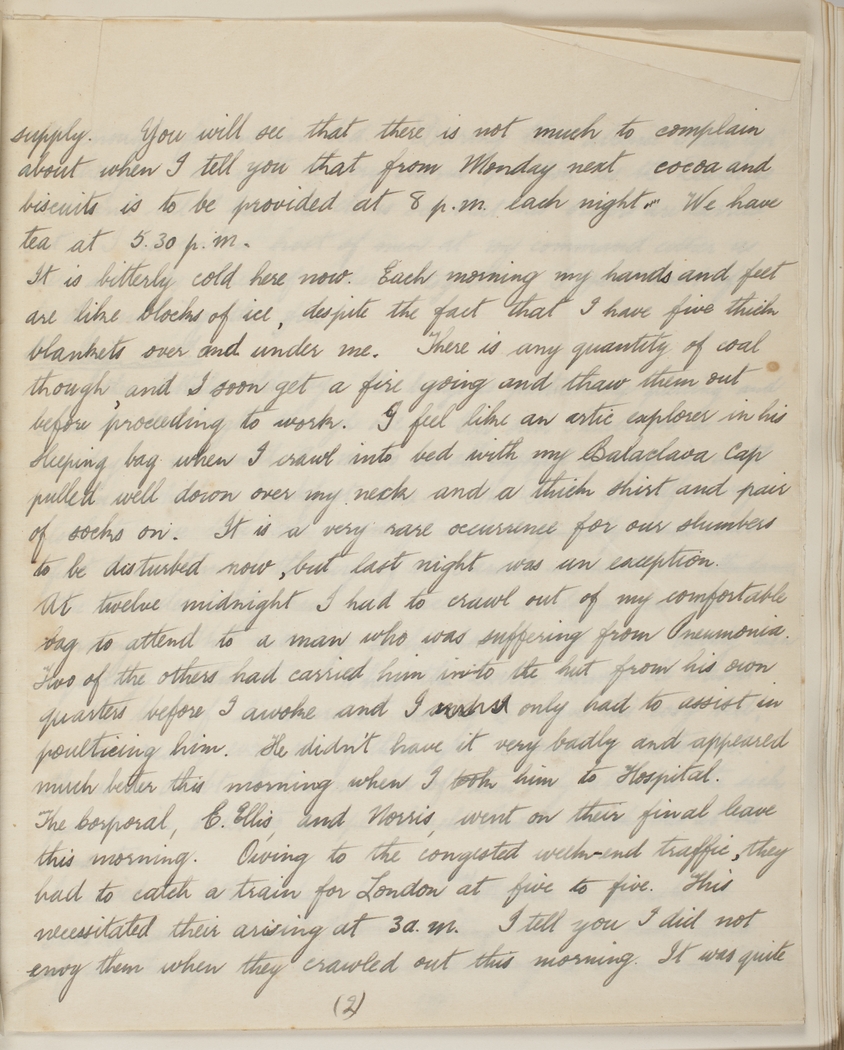 supply. You will see that there is not much to complain
about when I tell you that from Monday next cocoa and
biscuits is to be provided at 8 p.m. each night." We have
tea at 5.30 p.m.
It is bitterly cold here now. Each morning my hands and feet
are like blocks of ice, despite the fact that I have five thick
blankets over and under me. There is any quantity of coal
though, and I soon get a fire going and thaw them out
before proceeding to work. I feel like an artic explorer in his
sleeping bag when I crawl into bed with my Balaclava Cap
pulled well down over my neck and a thick shirt and pair
of socks on. It is a very rare occurrence for our slumbers
to be disturbed now, but last night was an exception.
At twelve midnight I had to crawl out of my comfortable
bag to attend to a man who was suffering from Pneumonia.
Two of the others had carried him into the hut from his own
quarters before I awoke and I only had to assist in
poulticing him. He didn't have it very badly and appeared
much better this morning when I took him to Hospital.
The Corporal, E. Ellis, and Norris, went on their final leave
this morning. Owing to the congested week-end traffic, they
had to catch a train for London at five to five. This
necessitated their arising at 3 a.m. I tell you I did not
envy them when they crawled out this morning. It was quite
(2)